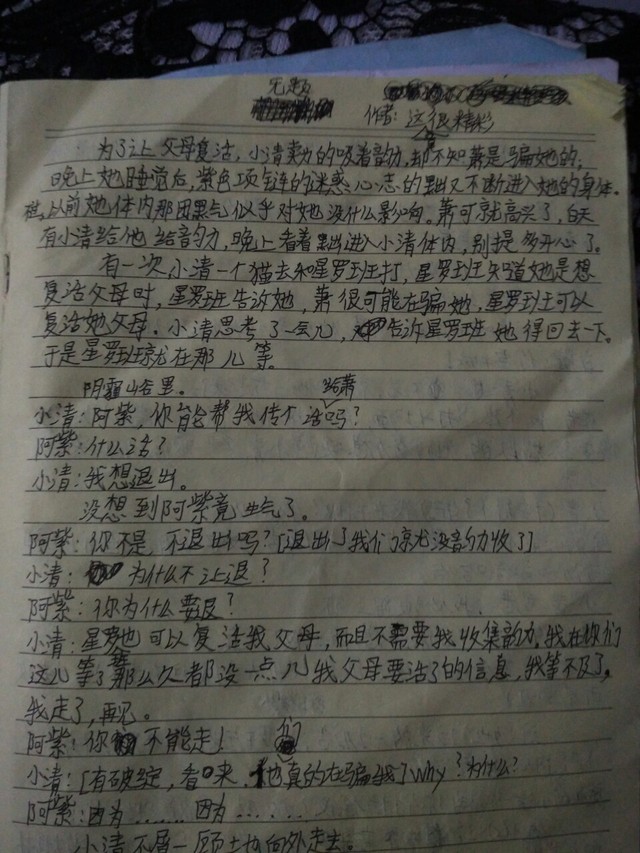 无题
作者:这很精彩
为了让父母复活,小清卖力的吸着韵力,却不知萧是骗她的,
晚上她睡前后,紫色项链的迷惑心志的黑气又不断进入她的身体。
以前她体内那团黑气似乎对她没什么影响。萧可就高兴了,白天
有小清给他给韵力,晚上看着黑气进入小清体内,别提多开心了。
有一次,小清一个猫去和星罗班打,星罗班知道她是想
复活父母时,星罗班告诉她,萧很可能在骗她,星罗班可以
复活她父母。小清思考了一会儿,告诉星罗班她得回去一下。
于是星罗班就在那儿等。
阴霾山谷里。
小清:阿紫,你能帮我传个话给萧吗?
阿紫:什么话?
小清:我想退出。
没想到阿紫竟生气了。
阿紫:你不是,不退出吗?[退出了我们就没韵力收了]
小清:为什么不让退?
阿紫:你为什么要退?
小清:星罗也可以复活我父母,而且不需要我收集韵力,我在你们
这儿等了那么久都没一点儿我父母要活了的信息,我等不及了。
我走了,再见。
阿紫:你不能走!
小清:[有破绽,看来,他们真的在骗我]why?为什么?
阿紫:因为……因为……
小清不屑一顾地向外走去。